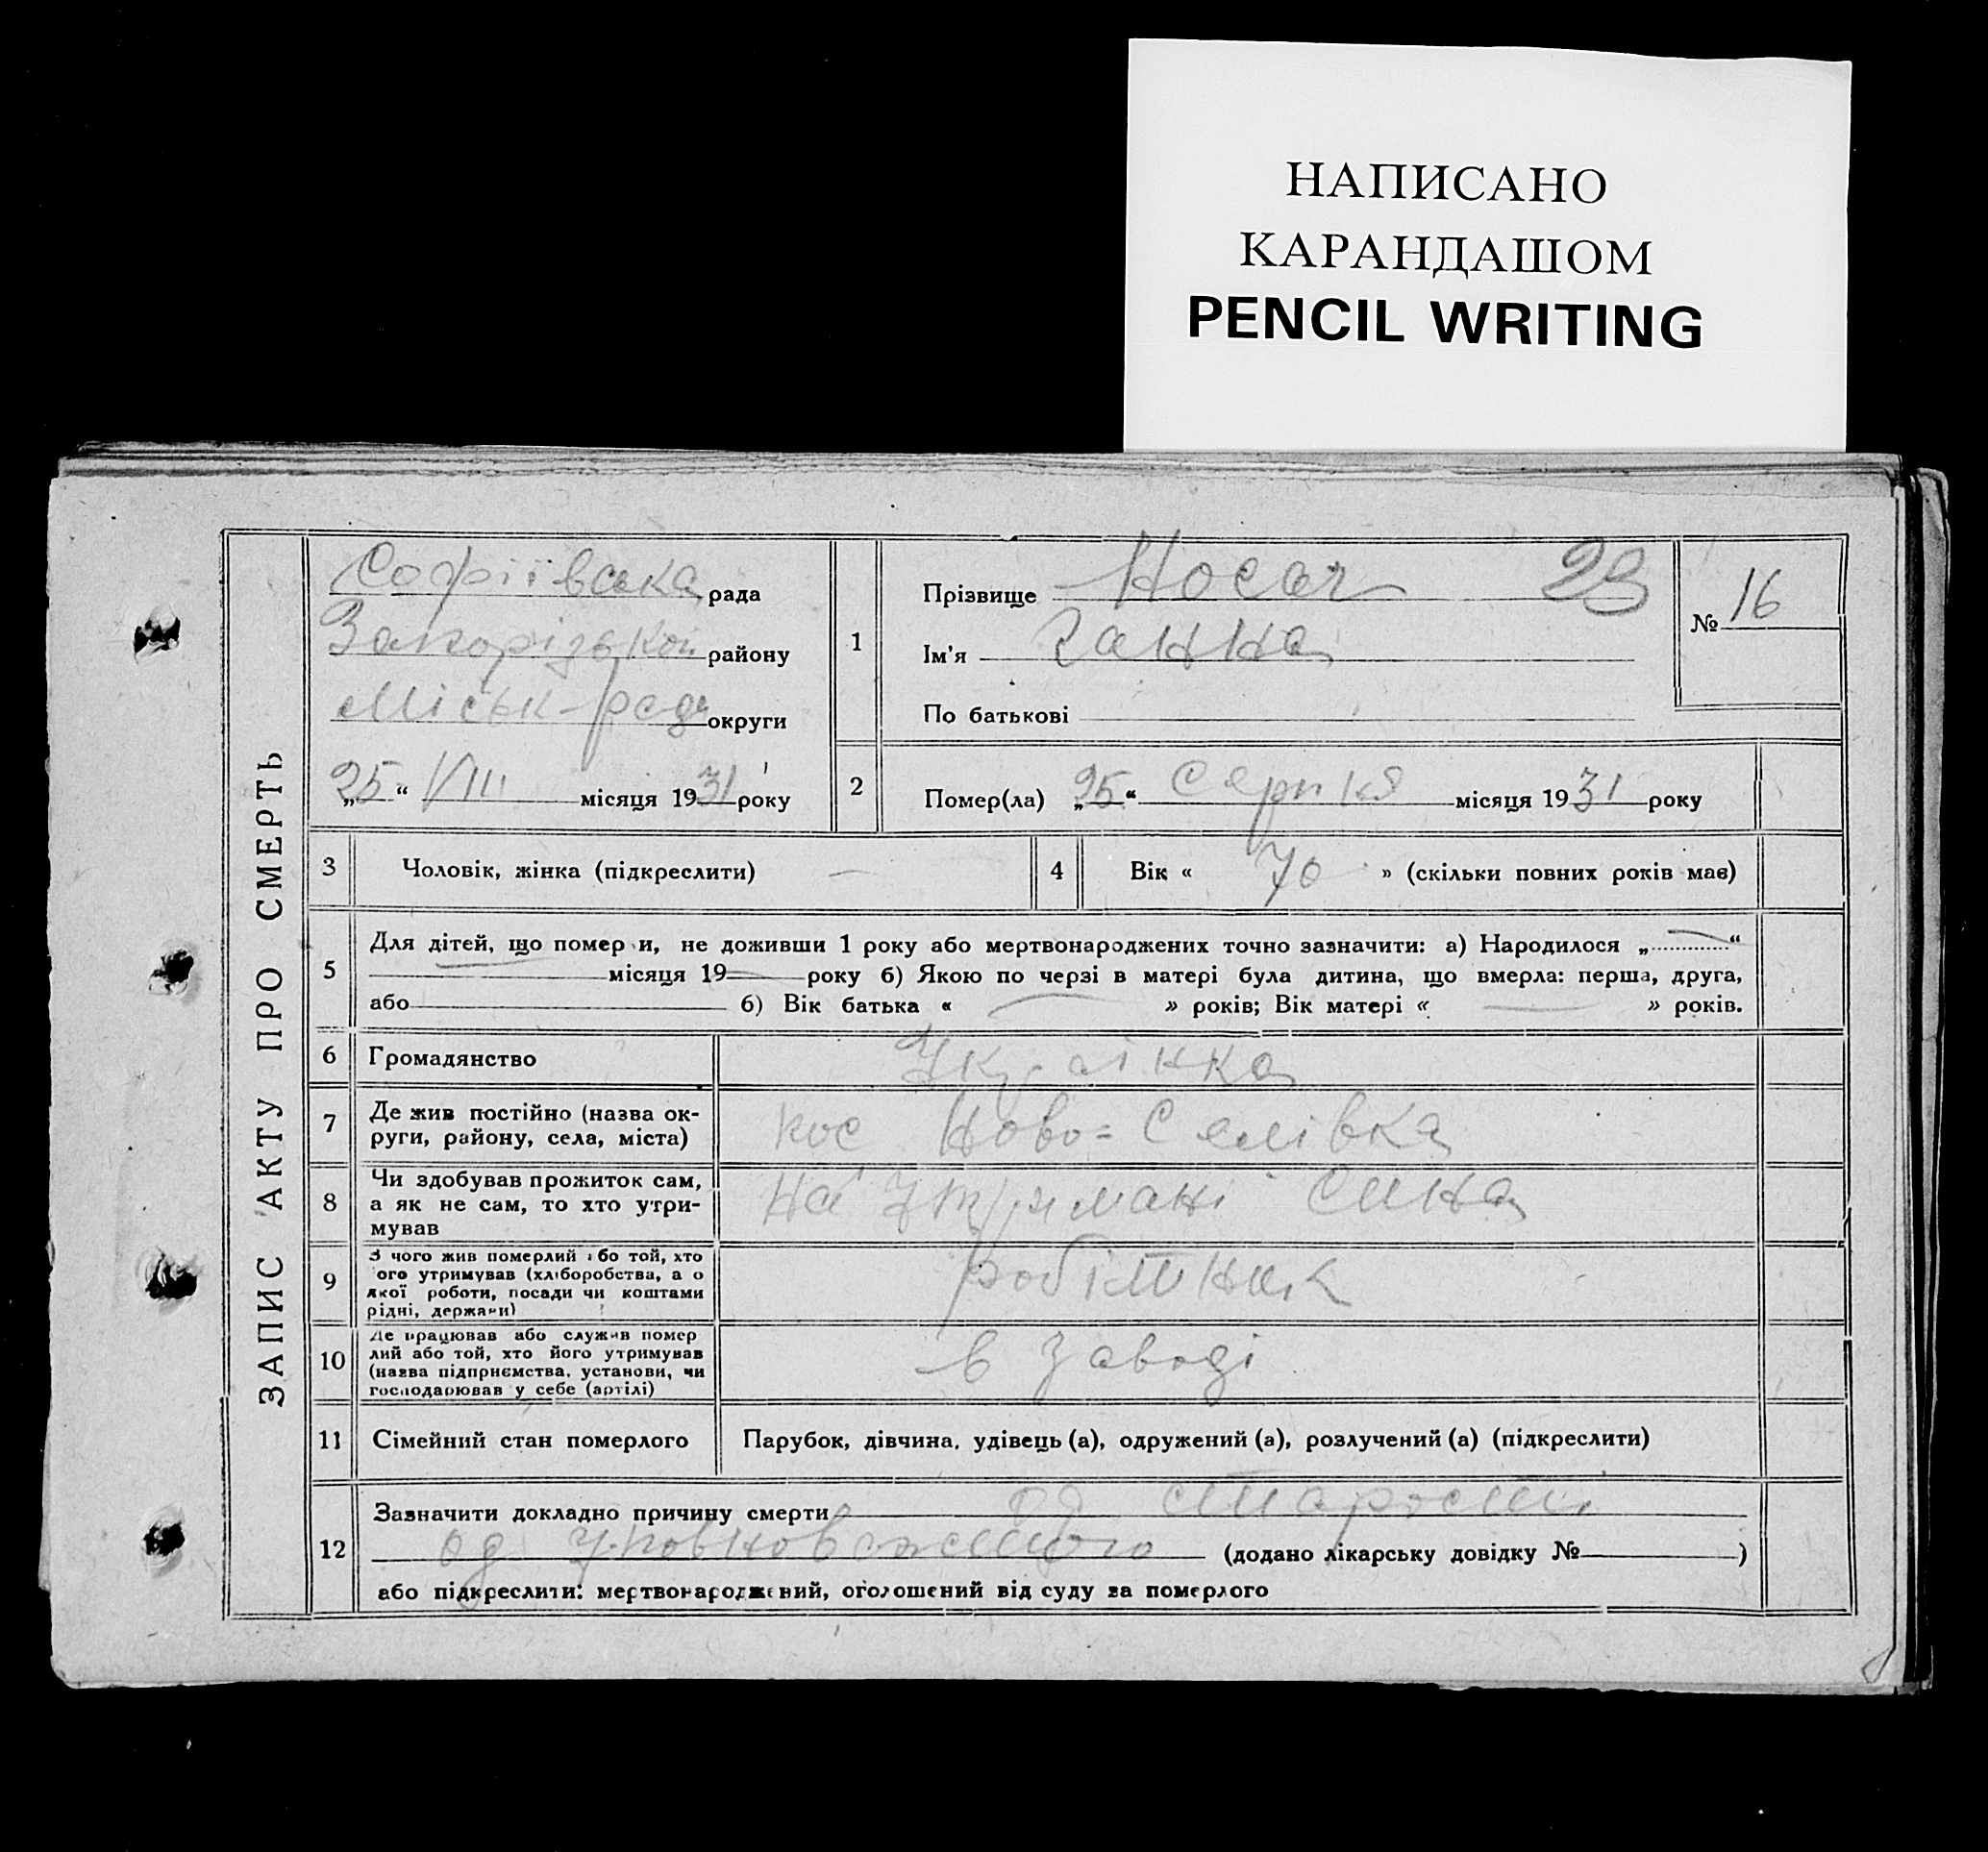 НАПИСАНО
КАРАНДАШОМ
PENCIL WRITING
ЗАПИС АКТУ ПРО СМЕРТЬ
Софіївська рада
Запорізькой району
Міськ-рад округи
„25“ VIII місяця 1931 року
1
Прізвище Носач 29
№ 16
Ім'я Ганна
По батькові
2 Помер(ла) „25“ Серпня місяця 1931 року
3 Чоловік, жінка (підкреслити)
4 Вік « 70 » (скільки повних років має)
5 Для дітей, що померли, не доживши 1 року або мертвонароджених точно зазначити: а) Народилося „ “
місяця 19 року б) Якою по черзі в матері була дитина, що вмерла: перша, друга,
або б) Вік батька « » років; Вік матері « » років.
6 Громадянство Укра-інка
7 Де жив постійно (назва ок-
руги, району, села, міста) Ново=Селівка
8 Чи здобував прожиток сам,
а як не сам, то хто утри-
мував На Утримані Сина
9 З чого жив померлий або той, хто
його утримував (хліборобства, а о
якої роботи, посади чи коштами
рідні, держави) робітник
10 Де працював або служив помер
лий або той, хто його утримував
(назва підприємства, установи, чи
господарював у себе (артілі) в заводі
11 Сімейний стан померлого Парубок, дівчина, удівець (а), одружений (а), розлучений (а) (підкреслити)
12 Зазначити докладно причину смерти од старости
од уповноваженого (додано лікарську довідку № )
або підкреслити: мертвонароджений, оголошений від суду за померлого